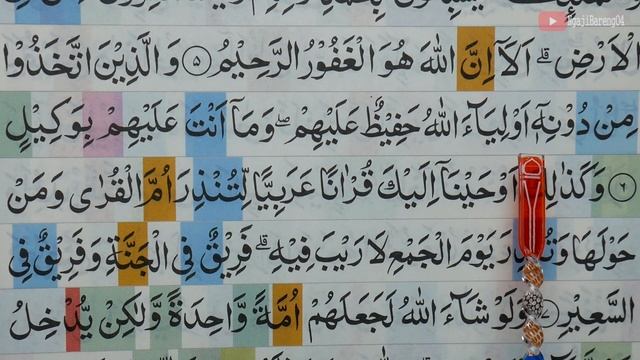 NgajiBareng04
الْاَرْضِۗ اَلَآ اِنَّ اللّٰهَ هُوَ الْغَفُوْرُ الرَّحِيْمُ ۝٥ وَالَّذِيْنَ اتَّخَذُوْا
مِنْ دُوْنِهٖٓ اَوْلِيَاۤءَ اللّٰهُ حَفِيْظٌ عَلَيْهِمْۖ وَمَآ اَنْتَ عَلَيْهِمْ بِوَكِيْلٍ
۝٦ وَكَذٰلِكَ اَوْحَيْنَآ اِلَيْكَ قُرْاٰنًا عَرَبِيًّا لِّتُنْذِرَ اُمَّ الْقُرٰى وَمَنْ
حَوْلَهَا وَتُنْذِرَ يَوْمَ الْجَمْعِ لَا رَيْبَ فِيْهِۗ فَرِيْقٌ فِى الْجَنَّةِ وَفَرِيْقٌ فِى
السَّعِيْرِ ۝٧ وَلَوْ شَاۤءَ اللّٰهُ لَجَعَلَهُمْ اُمَّةً وَّاحِدَةً وَّلٰكِنْ يُّدْخِلُ